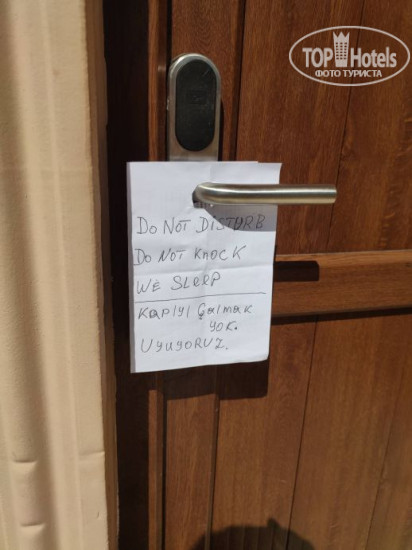 TOP Hotels
ФОТО ТУРИСТА
DO NOT DISTURB
DO NOT KNOCK
WE SLEEP
KAPIYI ÇALMAK
YOK.
UYUYORUZ.